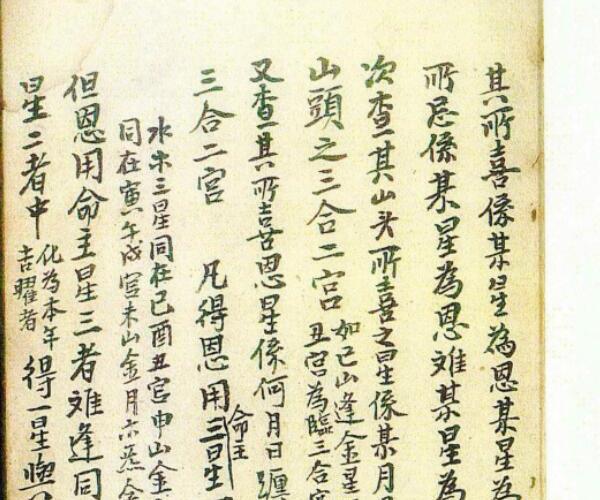 其所喜係某星為恩某星為
所忌係某星為恩难某星為
次查其山头所喜之星係某月
山頭之三合二宮如巳山逢金星
丑宮為臨三合宮
又查其所喜恩星係何月日躔
三合二宮　凡得恩用三星
命主
水木三星同在巳酉丑宮申山金
同在寅午戌宮未山金月六
但恩用命主星三者难逢同
星二者中化為本年
吉曜者得一星